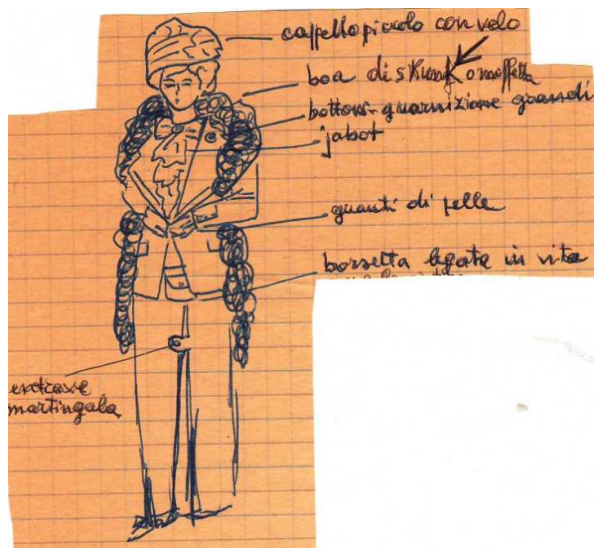 cappello piccolo con velo
boa di skunk o moffetta
bottoni-guarnizione grandi
jabot
guanti di pelle
borsetta legata in vita
martingala